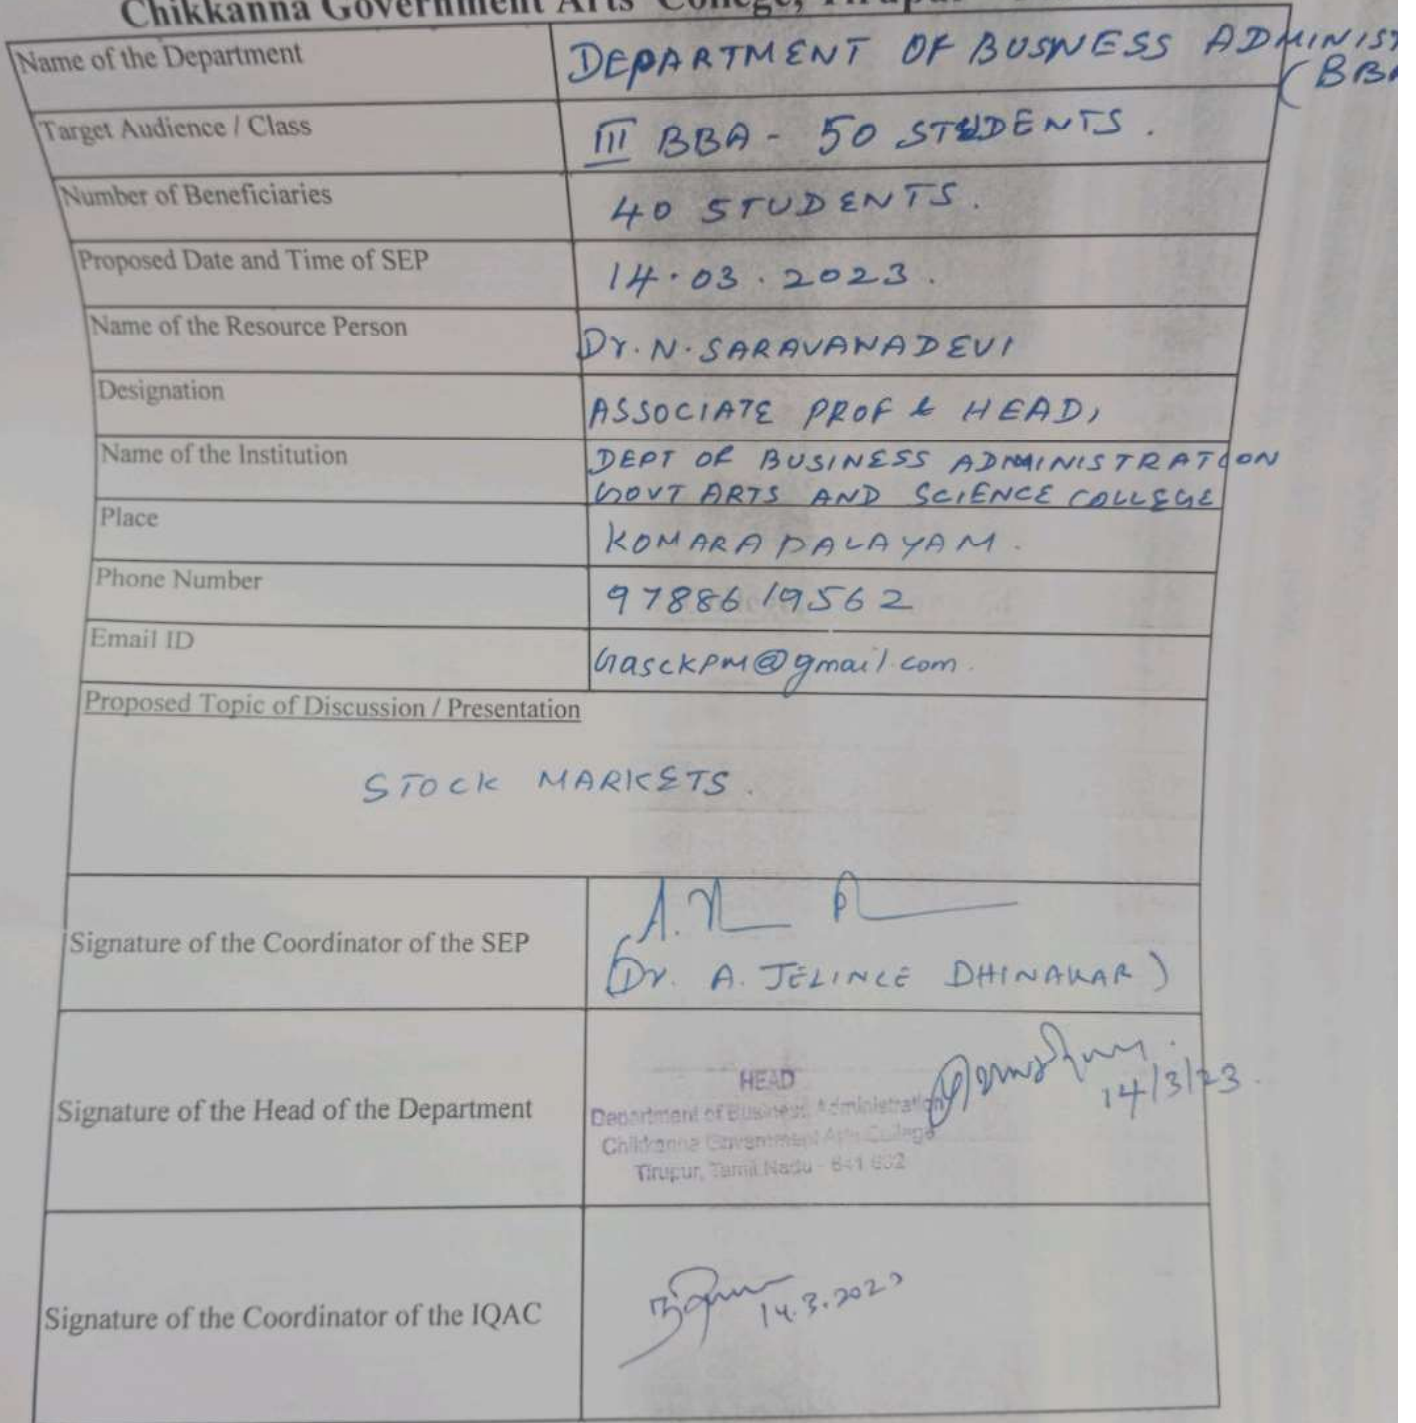 Chikkanna Government Arts College, Tirupur
Name of the Department DEPARTMENT OF BUSNESS ADMINIST
(BBA
Target Audience / Class III BBA - 50 STUDENTS.
Number of Beneficiaries 40 STUDENTS.
Proposed Date and Time of SEP 14.03.2023.
Name of the Resource Person Dr. N. SARAVANADEVI
Designation ASSOCIATE PROF & HEAD,
Name of the Institution DEPT OF BUSINESS ADMINISTRATION
GOVT ARTS AND SCIENCE COLLEGE
Place KOMARAPALAYAM.
Phone Number 9788619562
Email ID Gasckpm@gmail.com.
Proposed Topic of Discussion / Presentation
STOCK MARKETS.
Signature of the Coordinator of the SEP
(Dr. A. JELINCE DHINAKAR)
Signature of the Head of the Department
HEAD
Department of Business Administration
Chikkanna Government Arts College
Tirupur, Tamil Nadu - 641 602
14/3/23.
Signature of the Coordinator of the IQAC
14.3.2023